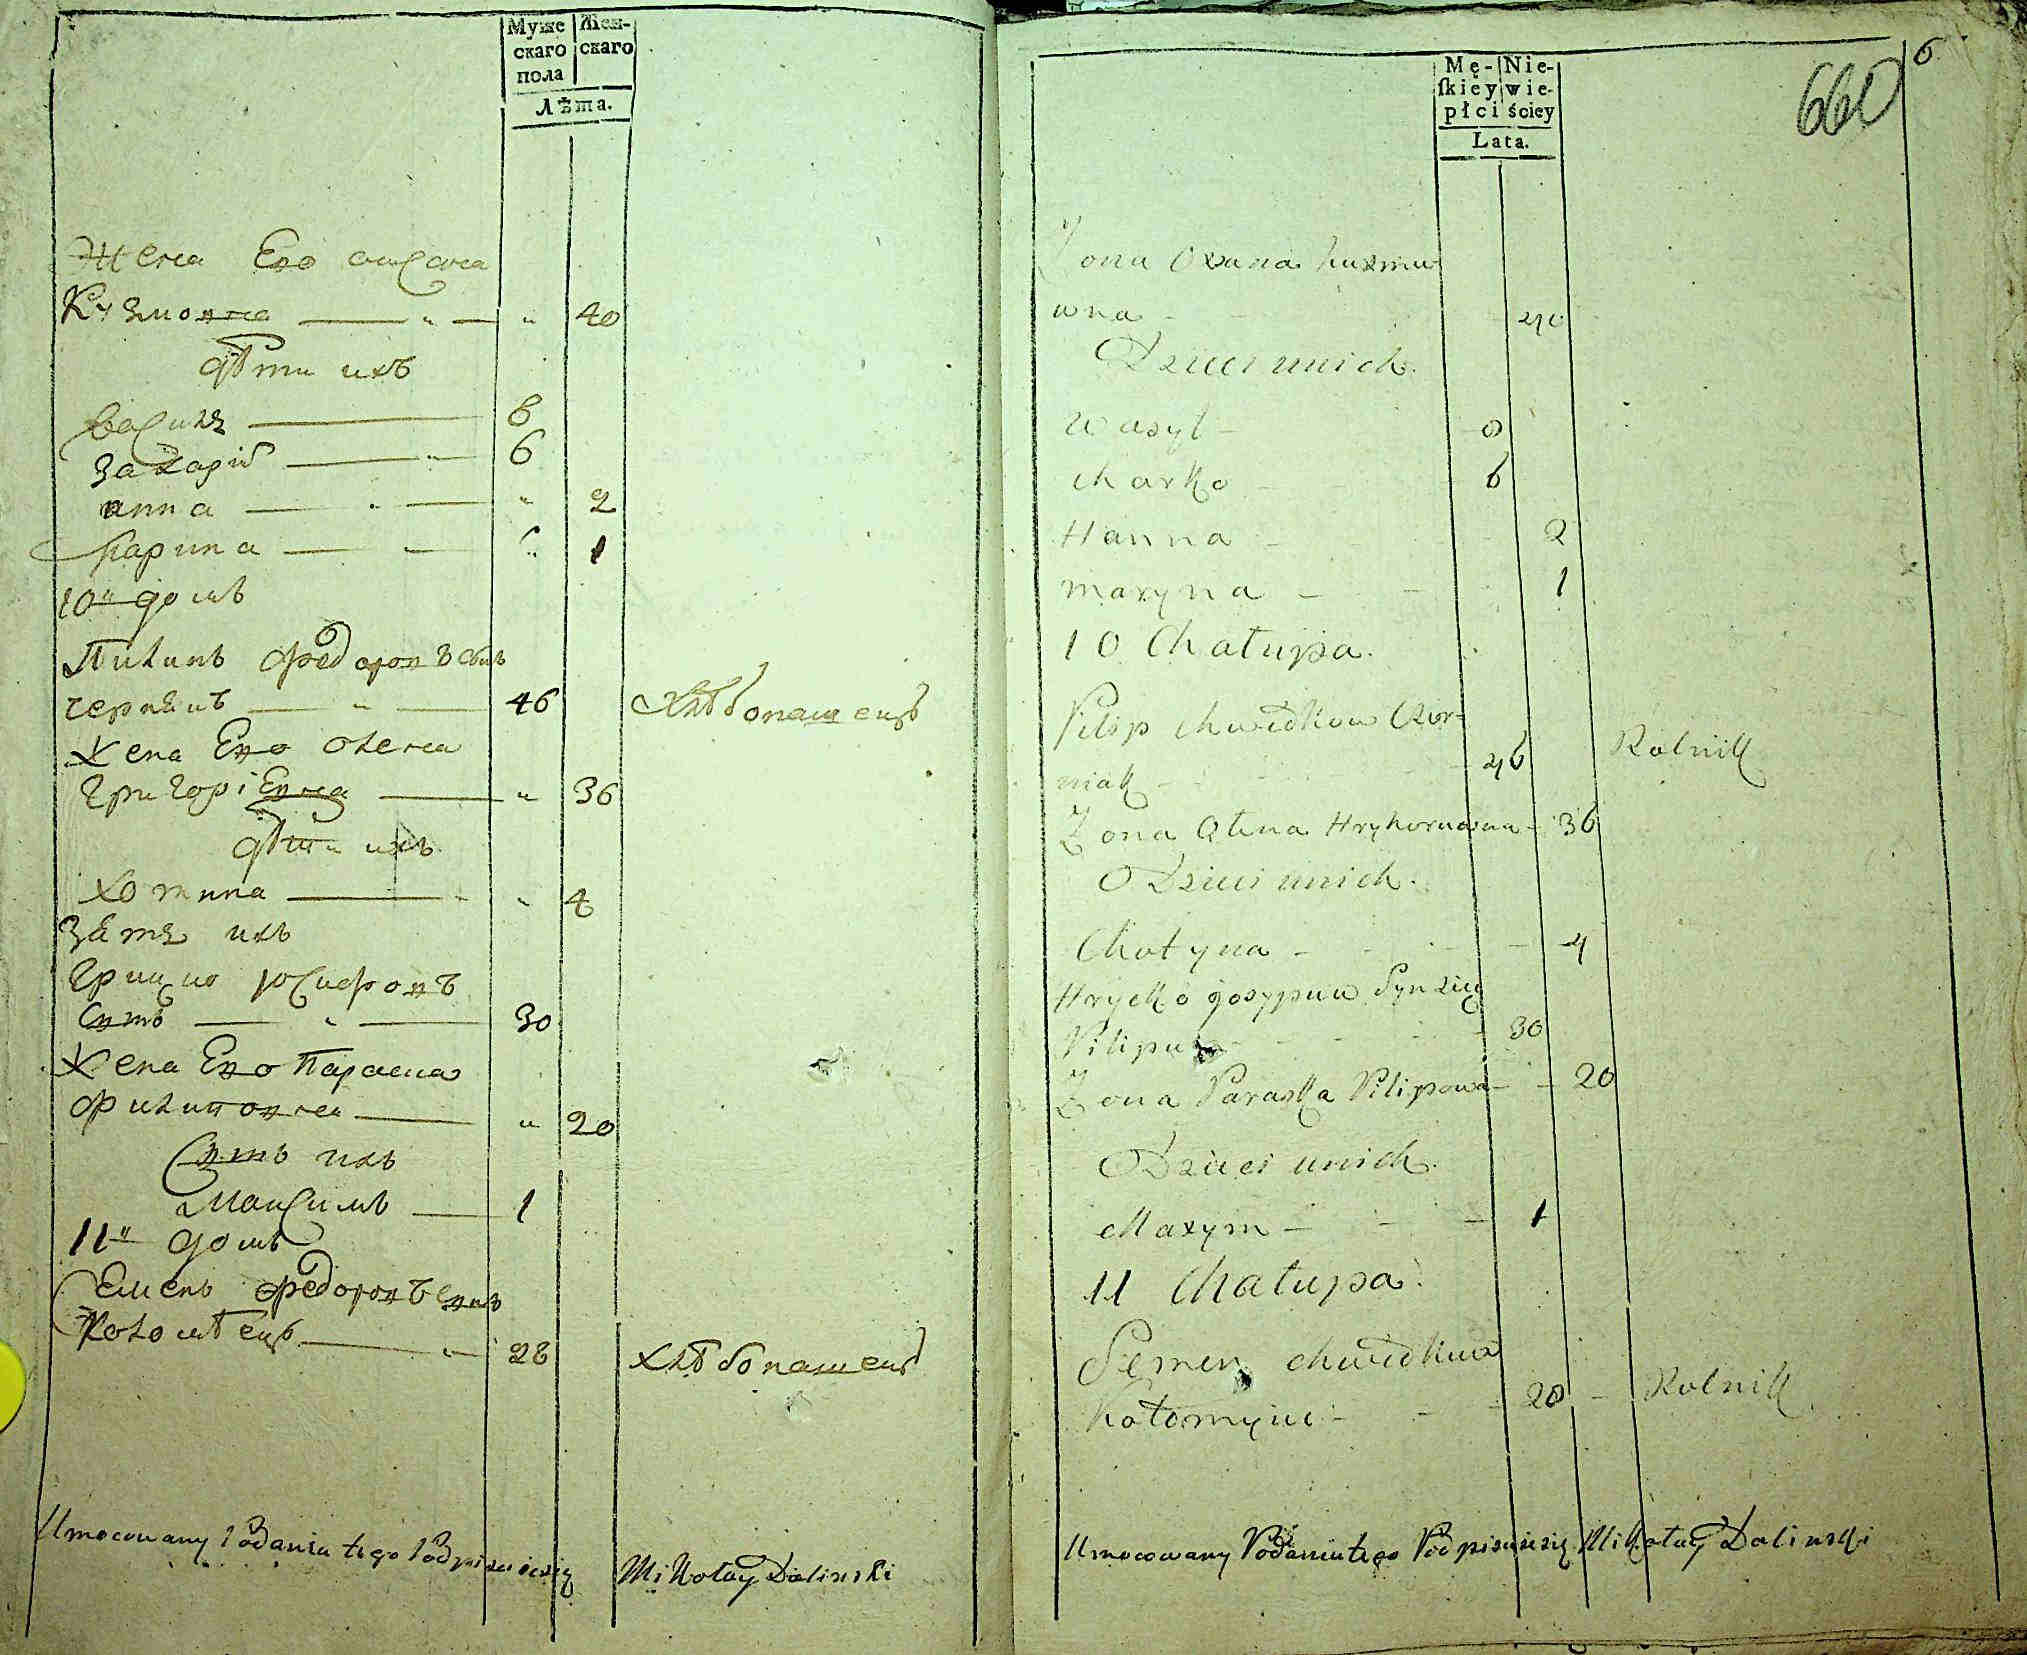 Муже Жен-
скаго скаго
пола
Лѣта.
Жена Его оксана
Кузмовна 40
дѣти ихъ
василь 8
Захарій 6
анна 2
Марина 1
10й домъ
Пилипъ Федоровъ сынъ
чернякъ 46 хлѣбопашецъ
жена Его олена
григоріевна 36
дѣти ихъ
хотина 4
Зять ихъ
грицко юсифовъ
сынъ 30
жена Его Параска
Филиповна 20
Сынъ ихъ
Максимъ 1
11й домъ
Семенъ Федоровъ сынъ
Коломѣецъ 28 хлѣбопашецъ
Umocowany Podaniu tego Podpisuie się Mikołay Dalinski
6
660
Mę- Nie-
ſkiey wie-
płci ściey
Lata.
Żona Oxana Kuzmu
wna 40
Dzieci unich.
Wasyl 8
charko 6
Hanna 2
maryna 1
10 Chałupa.
Pilip chwedkow Czer-
niak 46 Rolnik
Żona Olena Hryhorowna 36
Dzieci unich.
Chotyna 4
Hrycko Josypow Syn zięć
Pilipu 30
Żona Paraska Pilipowa 20
Dzieci unich.
Maxym 1
11 Chałupa.
Semen chwedkow
Kołomyiec 28 Rolnik
Umocowany Podaniu tego Podpisuie się Mikołay Dalinski